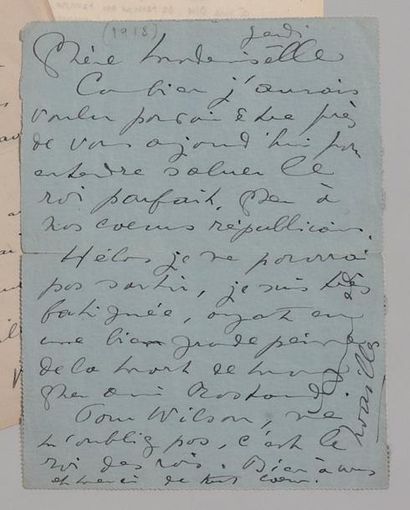 (1918)
Jeudi
Chère Mademoiselle
Combien j'aurais
voulu pouvoir être près
de vous aujourd'hui pour
entendre saluer le
roi parfait, cher à
nos coeurs républicains.
Hélas je ne pourrai
pas sortir, je suis très
fatiguée, ayant eu
une bien grande peine
de la mort de mon
cher ami Rostand.
Pour Wilson, ne
l'oubliez pas, c'est le
roi des rois. Bien à vous
et merci de tout coeur.
Noailles